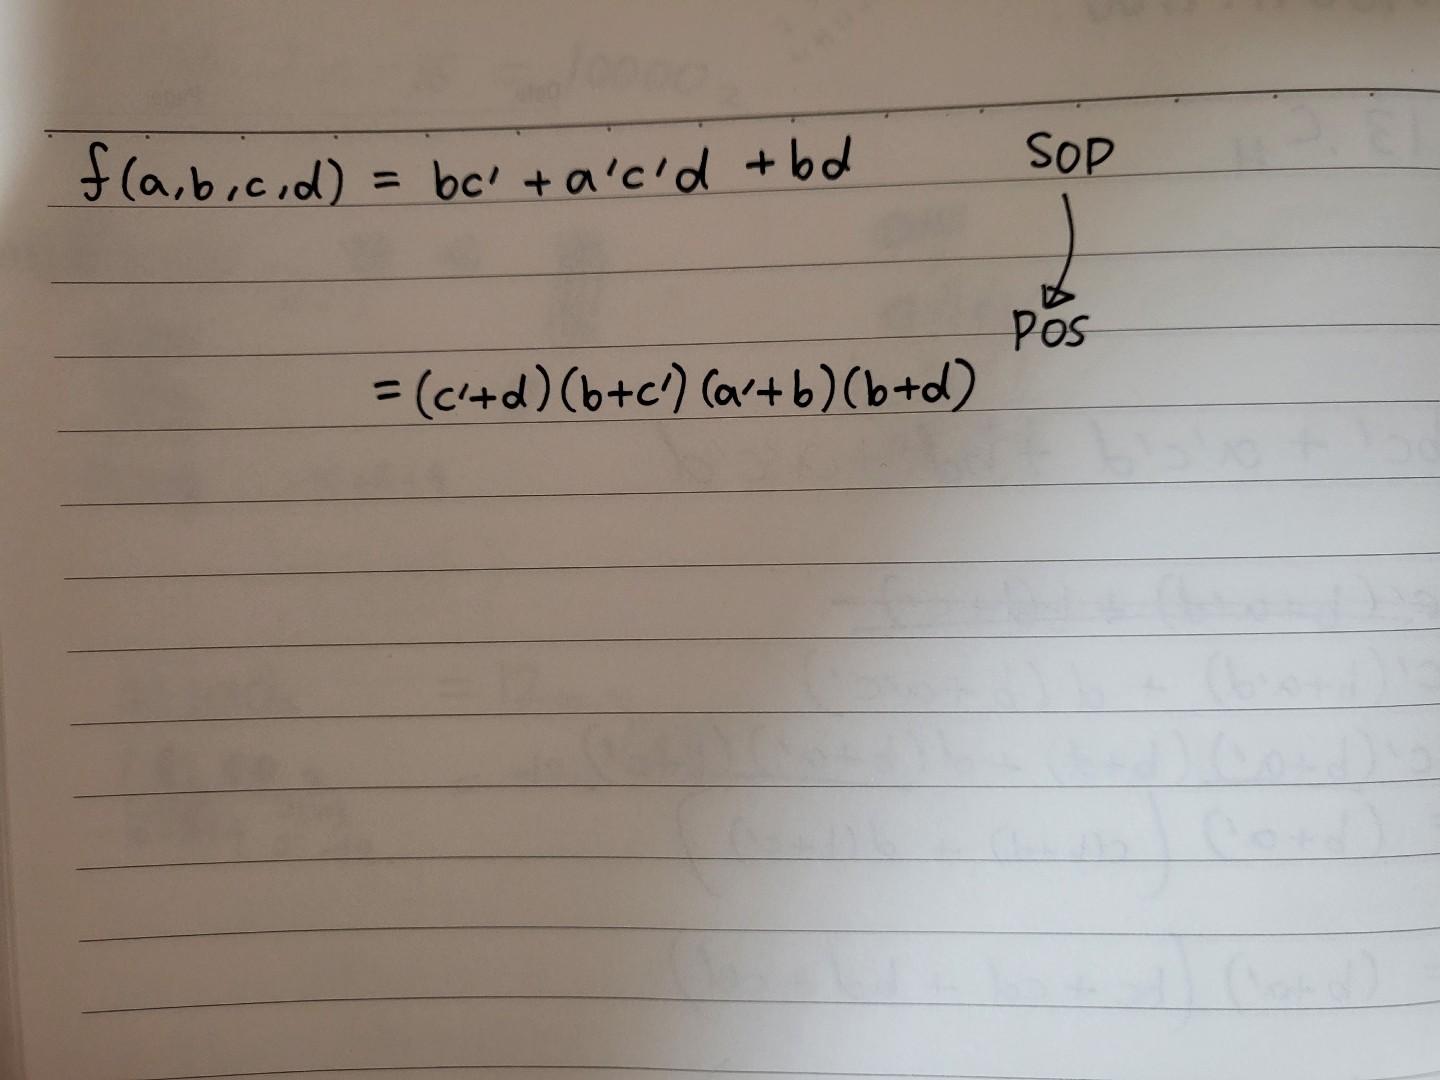 f(a,b,c,d) = bc' + a'c'd + bd SOP
POS
= (c'+d)(b+c')(a'+b)(b+d)